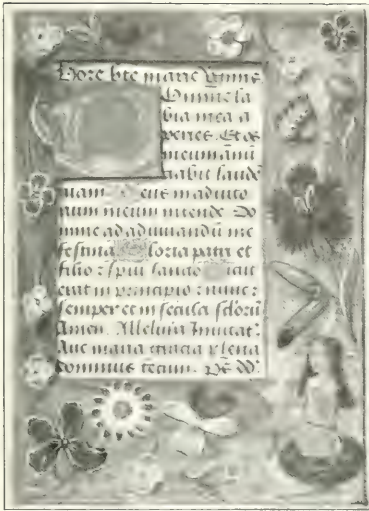 Hore bte marie virginis
Domine la
bia mea a
peries. Et os
meum anū
ciabit laudē
tuam. Deus in adiuto
rium meum intende Do
mine ad adiuuandū me
festina Gloria patri et
filio : spiri sancto Sicut
erat in principio : nunc :
semper et in secula sclorū
Amen. Alleluia Inuitat.
Aue maria gracia plena
dominus tecum. ps